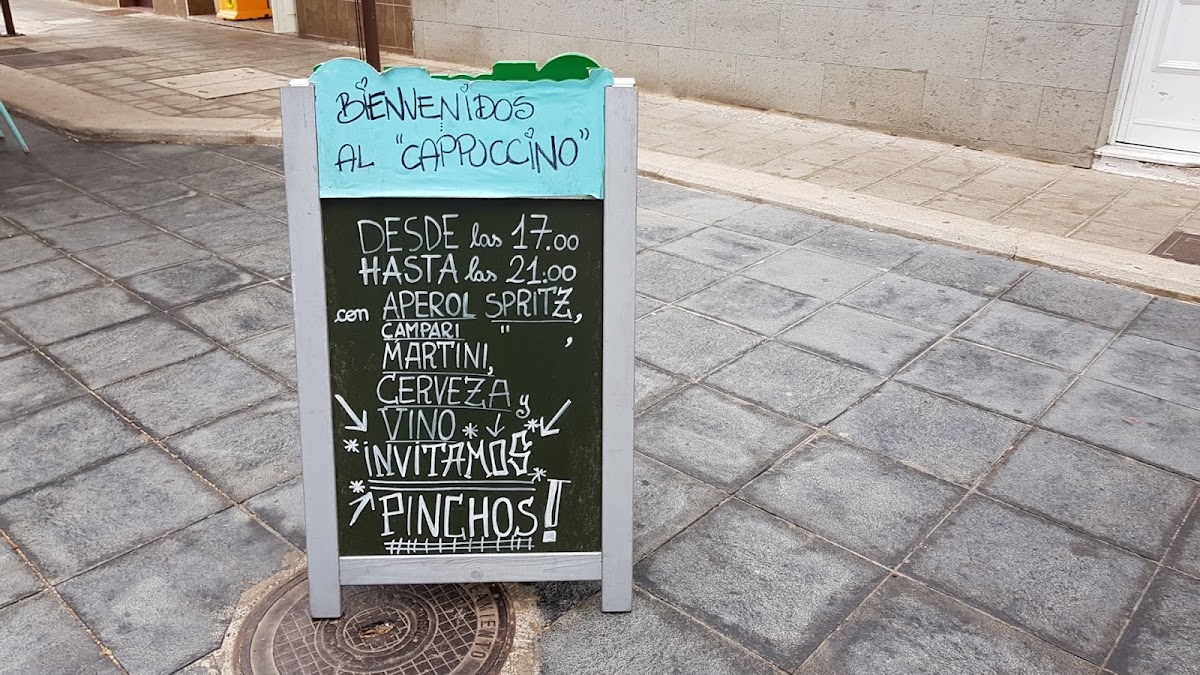 BiENVENiDOS
AL "CAPPUCCINO"
DESDE las 17.00
HASTA las 21:00
con APEROL SPRITZ,
CAMPARI " ,
MARTINI,
CERVEZA y
VINO
iNViTAMOS
PINCHOS!